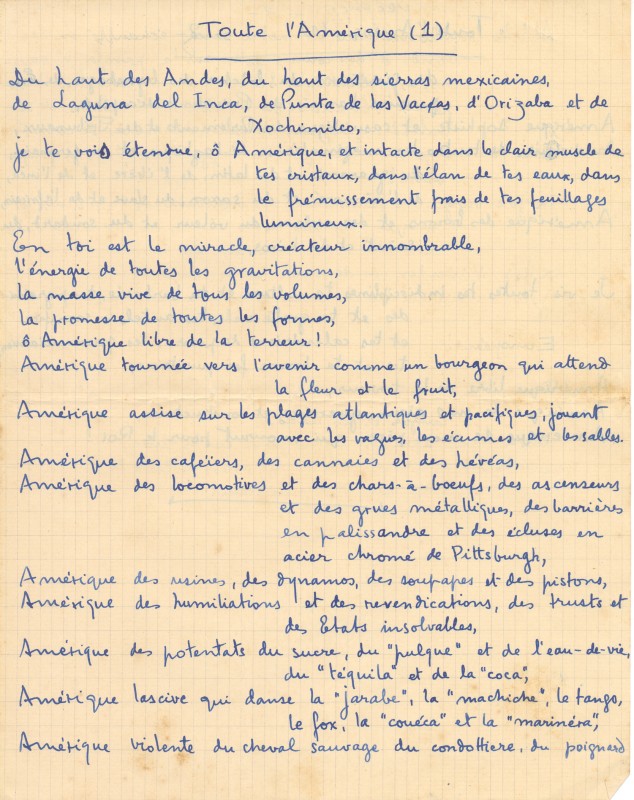 Toute l'Amérique (1)
Du haut des Andes, du haut des sierras mexicaines,
de Laguna del Inca, de Punta de las Vacas, d'Orizaba et de
Xochimilco,
je te vois étendue, ô Amérique, et intacte dans le clair muscle de
tes cristaux, dans l'élan de tes eaux, dans
le frémissement frais de tes feuillages
lumineux.
En toi est le miracle, créateur innombrable,
l'énergie de toutes les gravitations,
la masse vive de tous les volumes,
la promesse de toutes les formes,
ô Amérique libre de la terreur !
Amérique tournée vers l'avenir comme un bourgeon qui attend
la fleur et le fruit,
Amérique assise sur les plages atlantiques et pacifiques, jouant
avec les vagues, les écumes et les sables.
Amérique des caféiers, des cannaies et des hévéas,
Amérique des locomotives et des chars-à-boeufs, des ascenseurs
et des grues métalliques, des barrières
en palissandre et des écluses en
acier chromé de Pittsburgh,
Amérique des usines, des dynamos, des soupapes et des pistons,
Amérique des humiliations et des revendications, des trusts et
des Etats insolvables,
Amérique des potentats du sucre, du "pulque" et de l'eau-de-vie,
du "téquila" et de la "coca",
Amérique lascive qui danse la "jarabe", la "machiche", le tango,
le fox, la "couéca" et la "marinéra",
Amérique violente du cheval sauvage du condottiere, du poignard